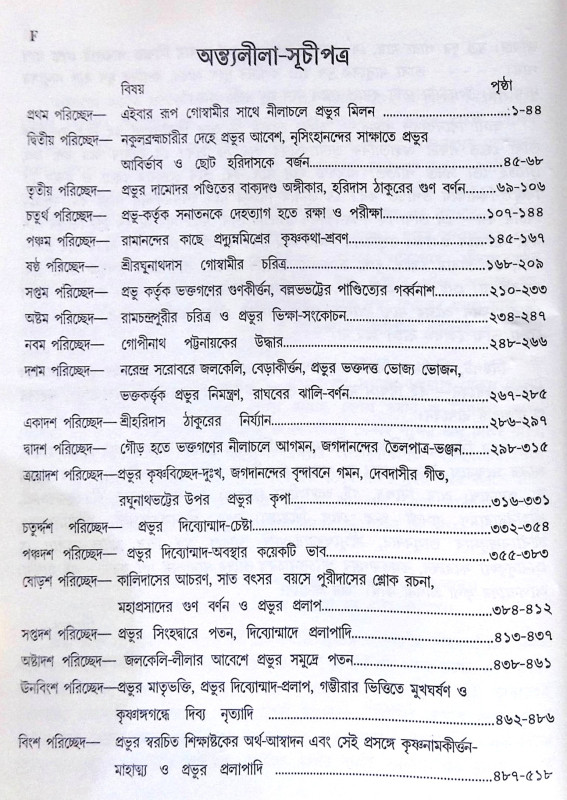 F
অন্ত্যলীলা-সূচীপত্র
বিষয় পৃষ্ঠা
প্রথম পরিচ্ছেদ— এইবার রূপ গোস্বামীর সাথে নীলাচলে প্রভুর মিলন ..........১-৪৪
দ্বিতীয় পরিচ্ছেদ— নকুলব্রহ্মচারীর দেহে প্রভুর আবেশ, নৃসিংহানন্দের সাক্ষাতে প্রভুর
আবির্ভাব ও ছোট হরিদাসকে বর্জন..........৪৫-৬৮
তৃতীয় পরিচ্ছেদ— প্রভুর দামোদর পণ্ডিতের বাক্যদণ্ড অঙ্গীকার, হরিদাস ঠাকুরের গুণ বর্ণন..........৬৯-১০৬
চতুর্থ পরিচ্ছেদ— প্রভু-কর্তৃক সনাতনকে দেহত্যাগ হতে রক্ষা ও পরীক্ষা..........১০৭-১৪৪
পঞ্চম পরিচ্ছেদ— রামানন্দের কাছে প্রদ্যুম্নমিশ্রের কৃষ্ণকথা-শ্রবণ..........১৪৫-১৬৭
ষষ্ঠ পরিচ্ছেদ— শ্রীরঘুনাথদাস গোস্বামীর চরিত্র..........১৬৮-২০৯
সপ্তম পরিচ্ছেদ— প্রভু কর্তৃক ভক্তগণের গুণকীর্ত্তন, বল্লভভট্টের পাণ্ডিত্যের গর্ব্বনাশ..........২১০-২৩৩
অষ্টম পরিচ্ছেদ— রামচন্দ্রপুরীর চরিত্র ও প্রভুর ভিক্ষা-সংকোচন..........২৩৪-২৪৭
নবম পরিচ্ছেদ— গোপীনাথ পট্টনায়কের উদ্ধার..........২৪৮-২৬৬
দশম পরিচ্ছেদ— নরেন্দ্র সরোবরে জলকেলি, বেড়াকীর্ত্তন, প্রভুর ভক্তদত্ত ভোজ্য ভোজন,
ভক্তকর্তৃক প্রভুর নিমন্ত্রণ, রাঘবের ঝালি-বর্ণন..........২৬৭-২৮৫
একাদশ পরিচ্ছেদ— শ্রীহরিদাস ঠাকুরের নির্য্যান..........২৮৬-২৯৭
দ্বাদশ পরিচ্ছেদ— গৌড় হতে ভক্তগণের নীলাচলে আগমন, জগদানন্দের তৈলপাত্র-ভঞ্জন..........২৯৮-৩১৫
ত্রয়োদশ পরিচ্ছেদ—প্রভুর কৃষ্ণবিচ্ছেদ-দুঃখ, জগদানন্দের বৃন্দাবনে গমন, দেবদাসীর গীত,
রঘুনাথভট্টের উপর প্রভুর কৃপা..........৩১৬-৩৩১
চতুর্দ্দশ পরিচ্ছেদ— প্রভুর দিব্যোন্মাদ-চেষ্টা..........৩৩২-৩৫৪
পঞ্চদশ পরিচ্ছেদ— প্রভুর দিব্যোন্মাদ-অবস্থার কয়েকটি ভাব..........৩৫৫-৩৮৩
ষোড়শ পরিচ্ছেদ— কালিদাসের আচরণ, সাত বৎসর বয়সে পুরীদাসের শ্লোক রচনা,
মহাপ্রসাদের গুণ বর্ণন ও প্রভুর প্রলাপ..........৩৮৪-৪১২
সপ্তদশ পরিচ্ছেদ— প্রভুর সিংহদ্বারে পতন, দিব্যোন্মাদে প্রলাপাদি..........৪১৩-৪৩৭
অষ্টাদশ পরিচ্ছেদ— জলকেলি-লীলার আবেশে প্রভুর সমুদ্রে পতন..........৪৩৮-৪৬১
ঊনবিংশ পরিচ্ছেদ—প্রভুর মাতৃভক্তি, প্রভুর দিব্যোন্মাদ-প্রলাপ, গম্ভীরার ভিত্তিতে মুখঘর্ষণ ও
কৃষ্ণাঙ্গগন্ধে দিব্য নৃত্যাদি ..........৪৬২-৪৮৬
বিংশ পরিচ্ছেদ— প্রভুর স্বরচিত শিক্ষাষ্টকের অর্থ-আস্বাদন এবং সেই প্রসঙ্গে কৃষ্ণনামকীর্ত্তন-
মাহাত্ম্য ও প্রভুর প্রলাপাদি ..........৪৮৭-৫১৮